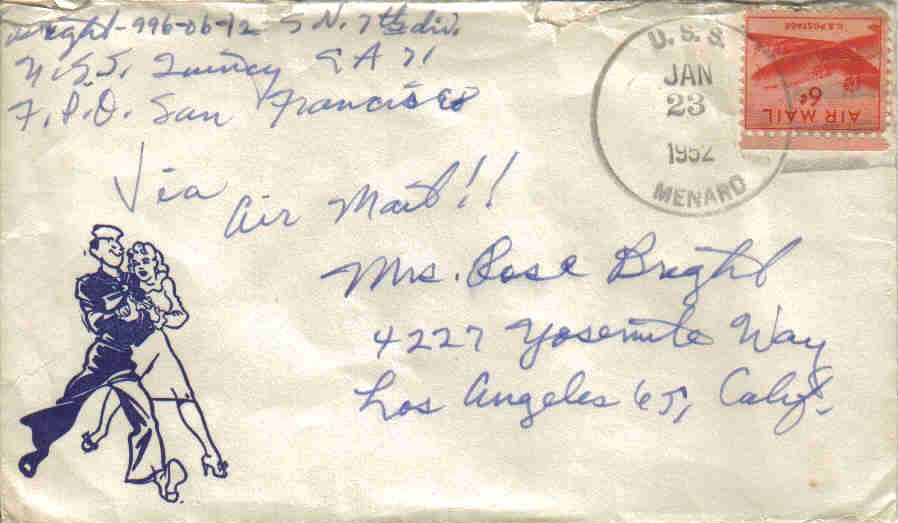 Bright-996-06-12 S N. 7th div.
U.S.S. Quincy CA 71
F.P.O. San Francisco
U.S.S.
JAN
23
1952
MENARD
U.S. POSTAGE
6¢
AIR MAIL
Via
Air Mail!!
Mrs. Rose Bright
4227 Yosemite Way
Los Angeles 65, Calif.